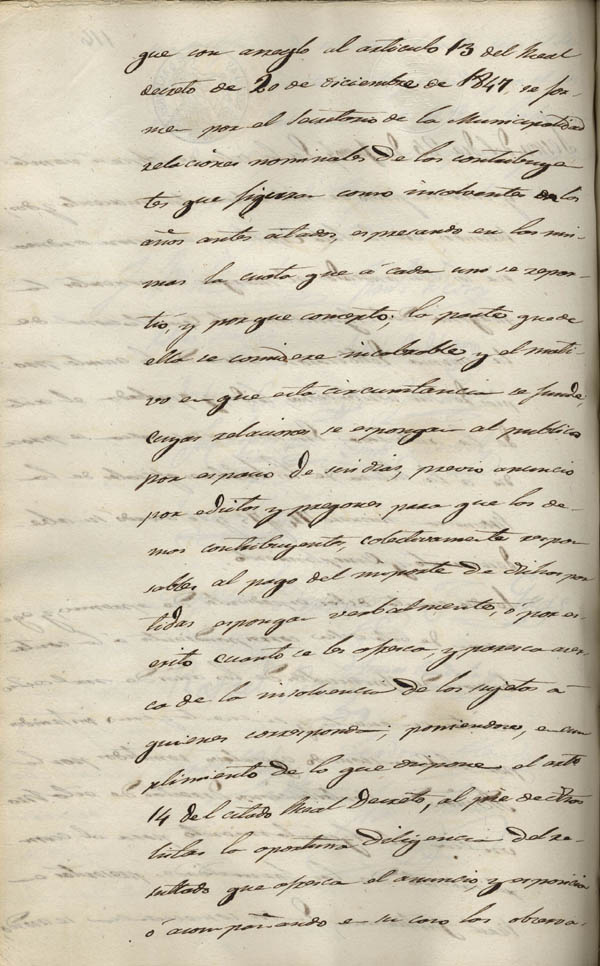 que con arreglo al articulo 13 del Real
decreto de 20 de diciembre de 1847, se for-
me por el Secretario de la Municipalidad
relaciones nominales de los contribuyen
tes que figuran como insolventes en los
años antes citados, espresando en las mis-
mas la cuota que á cada uno se repar-
tió, y por que concepto; la parte que de
ella se considere incobrable, y el moti-
vo en que esta circunstancia se funde;
cuyas relaciones se espongan al publico
por espacio de seis dias, previo anuncio
por edictos y pregones, para que los de-
mas contribuyentes, colectivamente respon
sables al pago del importe de dichas par
tidas espongan verbalmente, ó por es-
crito cuanto se les ofresca, y paresca acer-
ca de la insolvencia de los sujetos á
quienes corresponda; poniendose, en cum
plimiento de lo que dispone el arto
14 del citado Real Decreto, al pie de otros
la oportuna diligencia del re-
sultado que ofresca el anuncio, y esposicion
ó acompañando en su caso las observa-